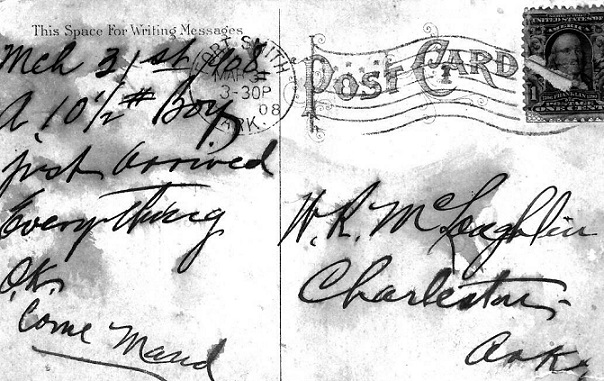 This Space For Writing Messages
Mch 31st 1908
A 10½# Boy
just arrived
Everything
O.K.
Come Maud
FORT SMITH
MAR 31
3-30P
08
ARK.
POST CARD
UNITED STATES OF
AMERICA
FRANKLIN
1 CENT
W. R. McLoughlin
Charleston,
Ark.